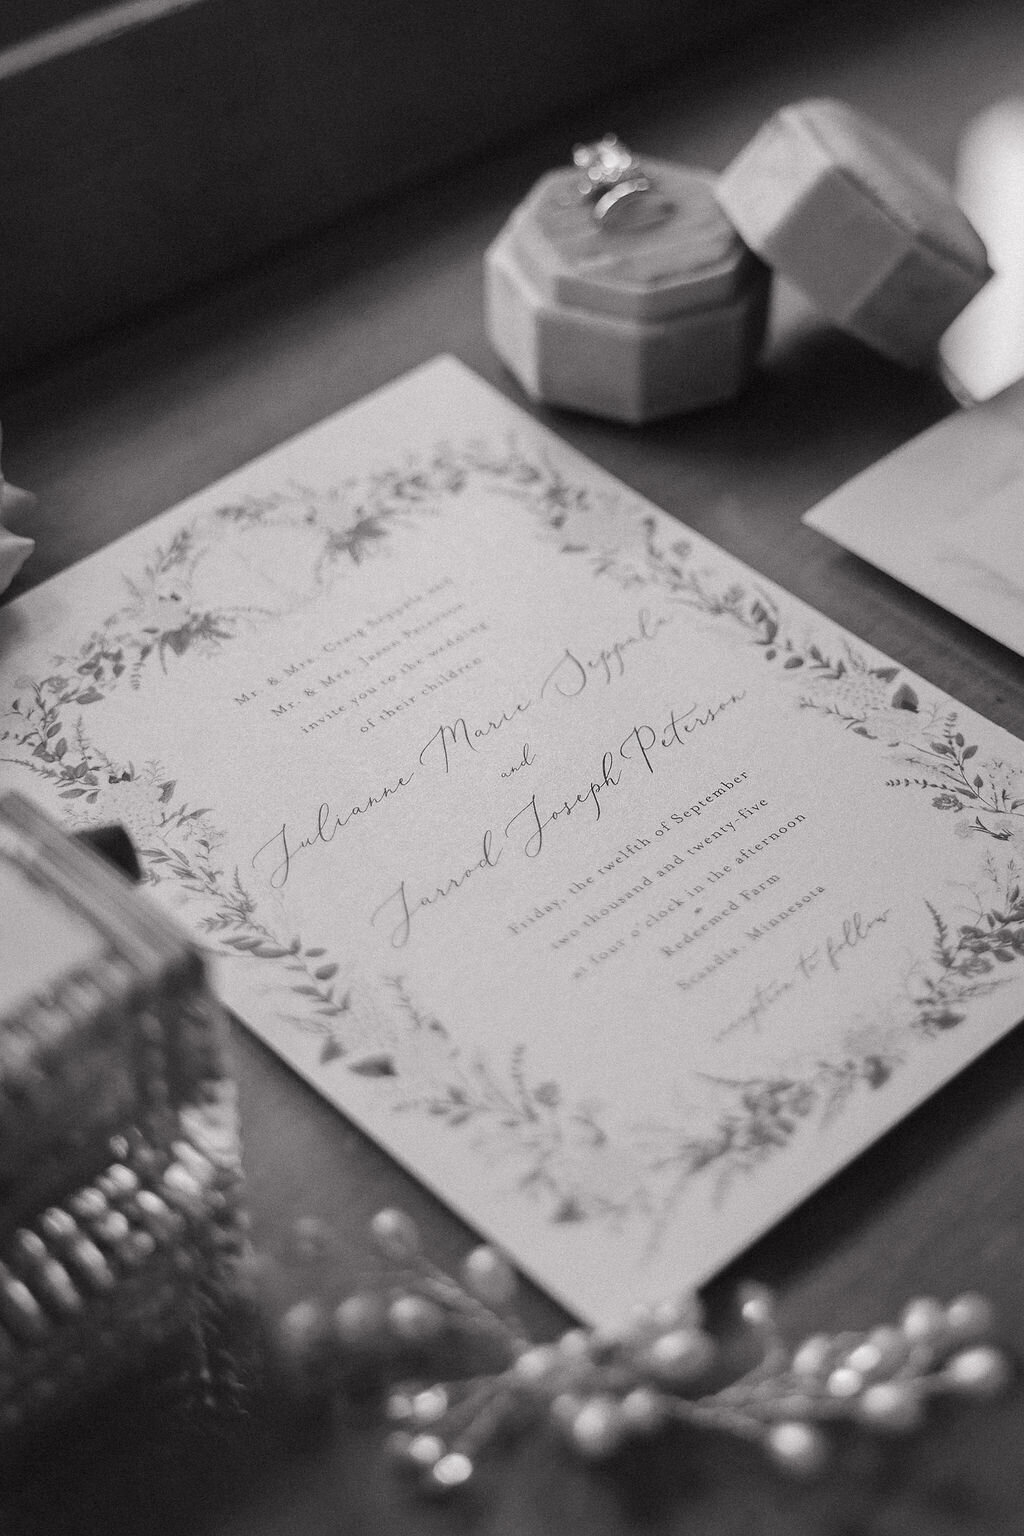 Mr. & Mrs. Craig Seppala and
Mr. & Mrs. Jason Peterson
invite you to the wedding
of their children
Julianne Marie Seppala
and
Jarrod Joseph Peterson
Friday, the twelfth of September
two thousand and twenty-five
at four o'clock in the afternoon
Redeemed Farm
Scandia, Minnesota
reception to follow